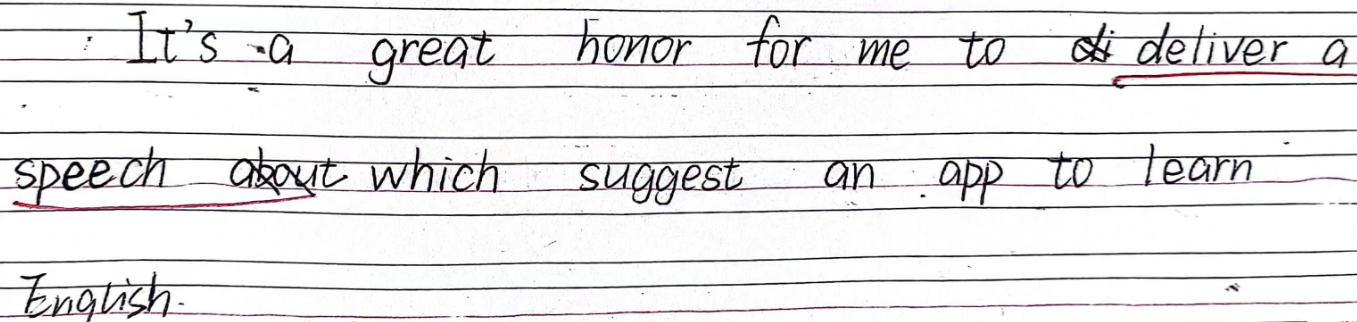 It's a great honor for me to deliver a
speech which suggest an app to learn
English.